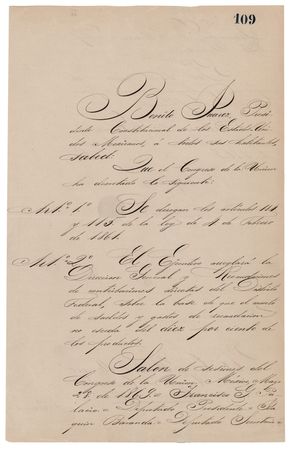 109
Benito Juarez, Presi-
dente Constitucional de los Estados Uni-
dos Mexicanos, á todos sus habitantes,
sabed:
Que el Congreso de la Union
ha decretado lo siguiente:
Art.º 1º Se derogan los artículos 114
y 115 de la ley de 4 de Febrero
de 1861.
Art.º 2º El Ejecutivo arreglará la
Direccion General y Recaudaciones
de contribuciones directas del Distrito
Federal, sobre la base de que el monto
de sueldos y gastos de recaudacion
no esceda del diez por ciento de
los productos.
Salon de sesiones del
Congreso de la Union. Mexico, Mayo
28 de 1869.
Diputado Presidente
Baranda Diputado Secretario